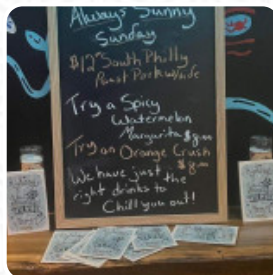 Always Sunny
Sunday
$12 South Philly
Roast Pork w/side
Try a Spicy
Watermelon
Margarita $8.00
Try an Orange Crush
$8.00
We have just the
right drinks to
Chill you out!